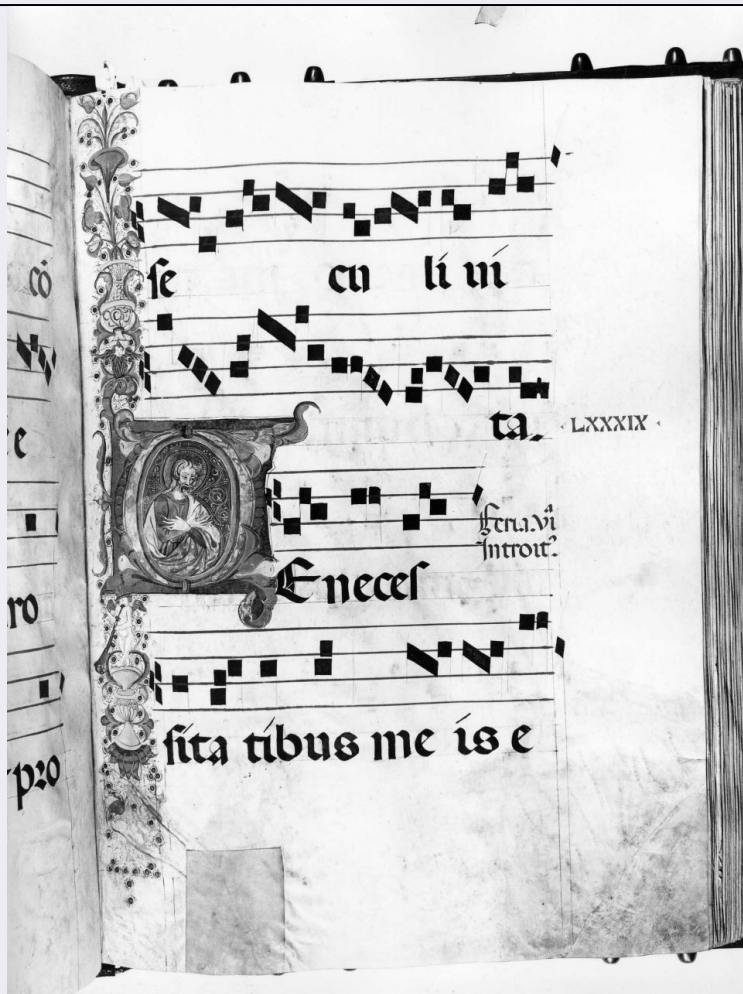 có
e
ro
pro
se cu li vi
ta.
LXXXIX
Feria. vi
Introit.
DE neces
sita tibus me is e